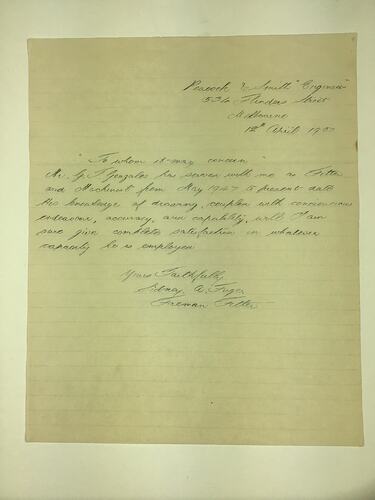 Peacock & Smith "Engineers"
534 Flinders Street
Melbourne
12th April 19
"To whom it may concern"
Mr. G. Gonzales has served with me as Fitter
and Machinist from May 1947 to present date
His knowledge of drawing, coupled with conciencious
endeavour, accuracy, and capability, will I am
sure give complete satisfaction in whatever
capacity he is employed
Yours Faithfully
Sidney A.
Foreman Fitter